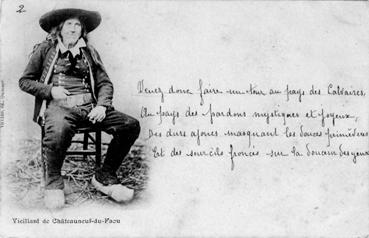 2
Venez donc faire un tour au pays des Calvaires,
Au pays des pardons mystiques et joyeux,
Des durs ajoncs masquant les douces primevères
Et des sourcils froncés sur la douceur des yeux
Vieillard de Châteauneuf-du-Faou